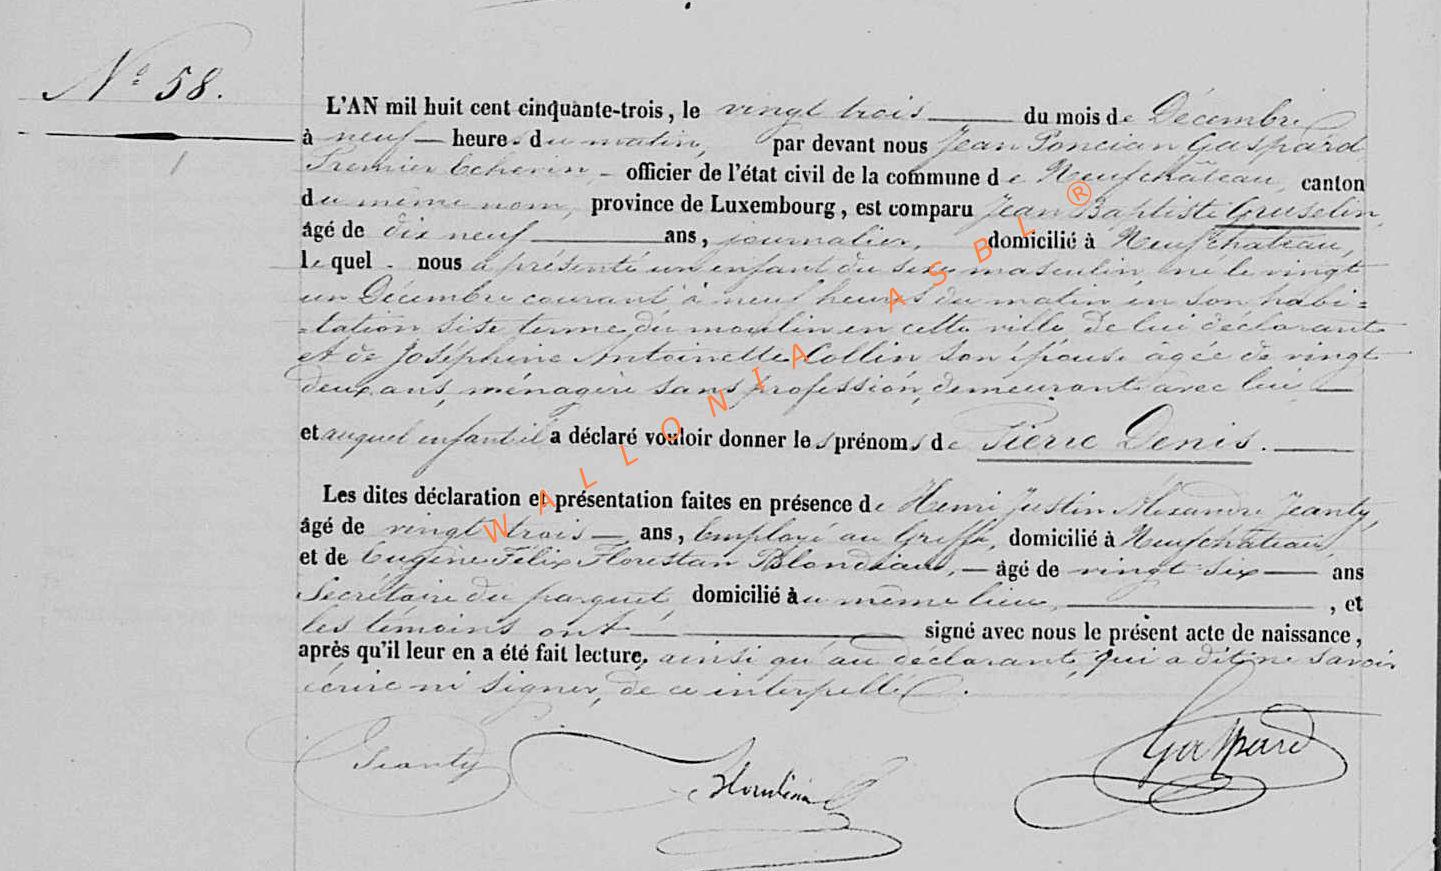 N° 58.
L'AN mil huit cent cinquante-trois, le vingt trois du mois de Décembre
à neuf heures du matin, par devant nous Jean Poncian Gaspard
Premier Echevin, officier de l'état civil de la commune de Neufchâteau, canton
du même nom, province de Luxembourg, est comparu Jean Baptiste Gruselin,
âgé de dix neuf ans, journalier, domicilié à Neufchateau,
le quel nous a présenté un enfant du sexe masculin né le vingt
un Décembre courant à neuf heures du matin en son habi=
=tation site terme du moulin en cette ville de lui déclarant
et de Joséphine Antoinette Collin son épouse âgée de vingt
deux ans, ménagère sans profession, demeurant avec lui,
et auquel enfant il a déclaré vouloir donner les prénoms de Pierre Denis.
Les dites déclaration et présentation faites en présence de Henri Justin Alexandre Jeanty,
âgé de vingt trois ans, Employé au Greffe, domicilié à Neufchateau,
et de Eugène Félix Florestan Blondiau, âgé de vingt six ans
Secrétaire du parquet, domicilié au même lieu, , et
les témoins ont signé avec nous le présent acte de naissance,
après qu'il leur en a été fait lecture, ainsi qu'au déclarant, qui a dit ne savoir
écrire ni signer, de ce interpellé.
Jeanty Gaspard
WALLONIA ASBL ®